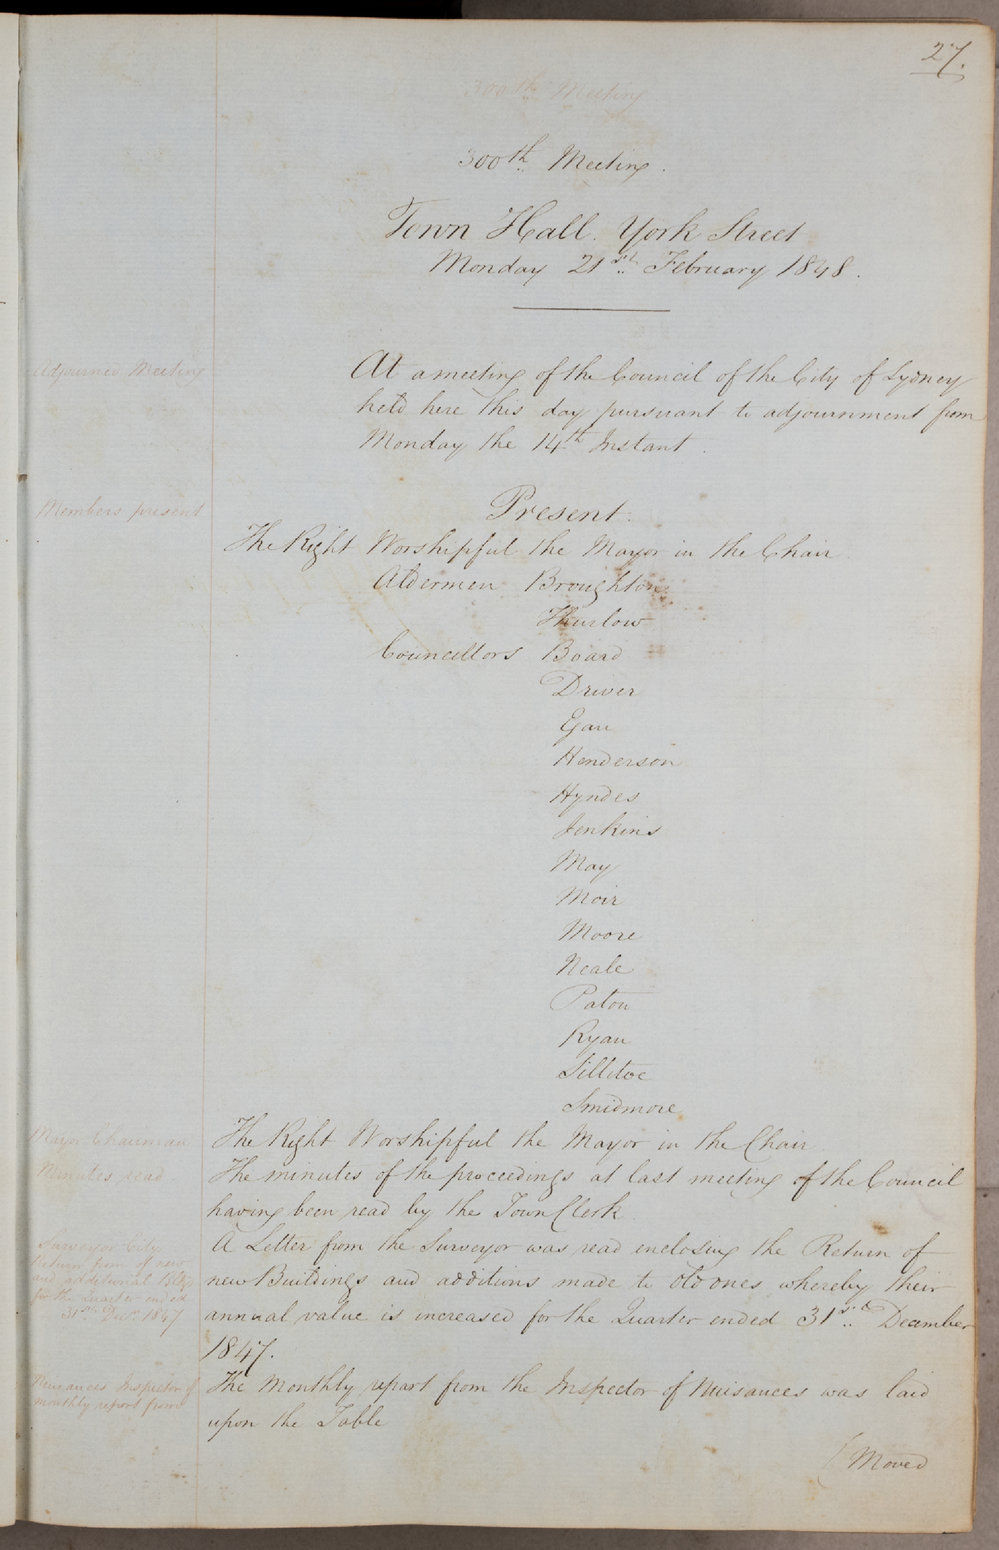 27.
300th Meeting
300th Meeting.
Town Hall. York Street
Monday 21st February 1848.
Adjourned Meeting
At a meeting of the Council of the City of Sydney
held here this day pursuant to adjournment from
Monday the 14th Instant.
Members present
Present.
The Right Worshipful the Mayor in the Chair
Aldermen Broughton
Thurlow
Councillors Board
Driver
Egan
Henderson
Hyndes
Jenkins
May
Moir
Moore
Neale
Paton
Ryan
Sillitoe
Smidmore
Mayor Chairman
The Right Worshipful the Mayor in the Chair
Minutes read
The minutes of the proceedings at last meeting of the Council
having been read by the Town Clerk
Surveyor City
Return from of new
and additional Bldgs
for the Quarter ended
31st Decr. 1847
A Letter from the Surveyor was read enclosing the Return of
new Buildings and additions made to old ones whereby their
annual value is increased for the Quarter ended 31st December
1847.
Nuisances Inspector of
monthly report from
The Monthly report from the Inspector of Nuisances was laid
upon the Table
(Moved